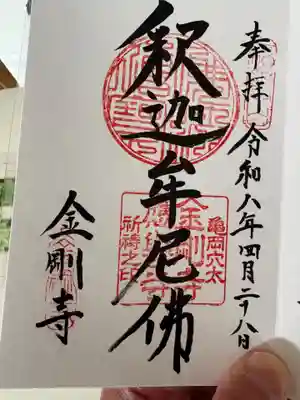 奉拝 令和八年四月二十八日
釈迦牟尼佛
亀岡穴太
金剛寺
祈祷之印
金剛寺